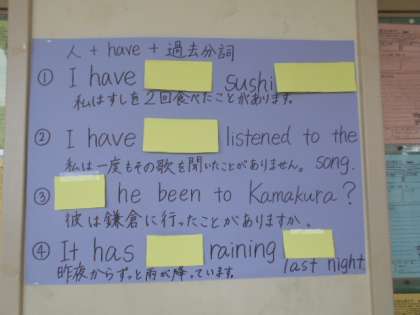 人 + have + 過去分詞
① I have sushi
私はすしを2回食べたことがあります。
② I have listened to the song.
私は一度もその歌を聞いたことがありません。
③ he been to Kamakura?
彼は鎌倉に行ったことがありますか。
④ It has raining last night
昨夜からずっと雨が降っています。